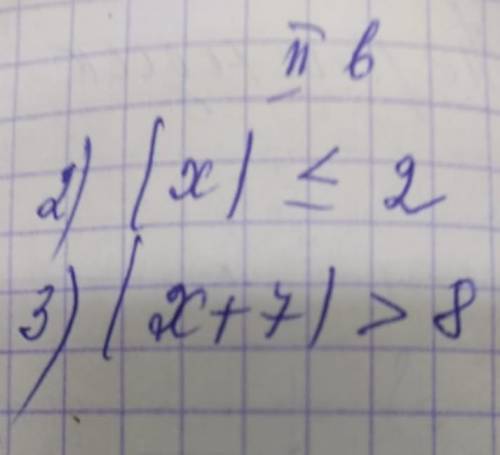 II в
2) |x| ≤ 2
3) |x+7| > 8